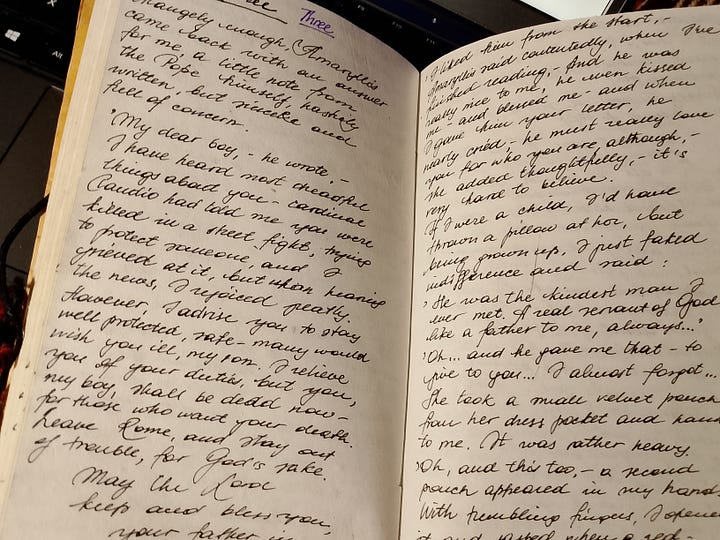 Three
Three
Strangely enough, Amaryllis
came back with an answer
for me, a little note from
the Pope himself, hastily
written, but sincere and
full of concern.
'My dear boy, - he wrote, -
I have heard most dreadful
things about you - cardinal
Claudio had told me you were
killed in a street fight, trying
to protect someone, and I
grieved at it, but when hearing
the news, I rejoiced greatly.
However, I advise you to stay
well protected, safe - many would
wish you ill, my son. I relieve
you of your duties, but you,
my boy, shall be dead now -
for those who want your death.
Leave Rome, and stay out
of trouble, for God's sake.
May the Lord
keep and bless you,
your father in
'I liked him from the start, -
Amaryllis said contentedly, when I've
finished reading, - And he was
really nice to me, he even kissed
me - and blessed me - and when
I gave him your letter, he
nearly cried - he must really love
you for who you are, although, -
she added thoughtfully, - it's
very hard to believe.
If I were a child, I'd have
thrown a pillow at her, but
being grown up, I just faked
indifference and said:
'He was the kindest man I
ever met. A real servant of God
like a father to me, always...'
'Oh... and he gave me that - to
give to you... I almost forgot...
She took a small velvet pouch
from her dress pocket and
to me. It was rather heavy.
'Oh, and this too, - a second
pouch appeared in my hand
With trembling fingers, I
it and when a red-
Alt